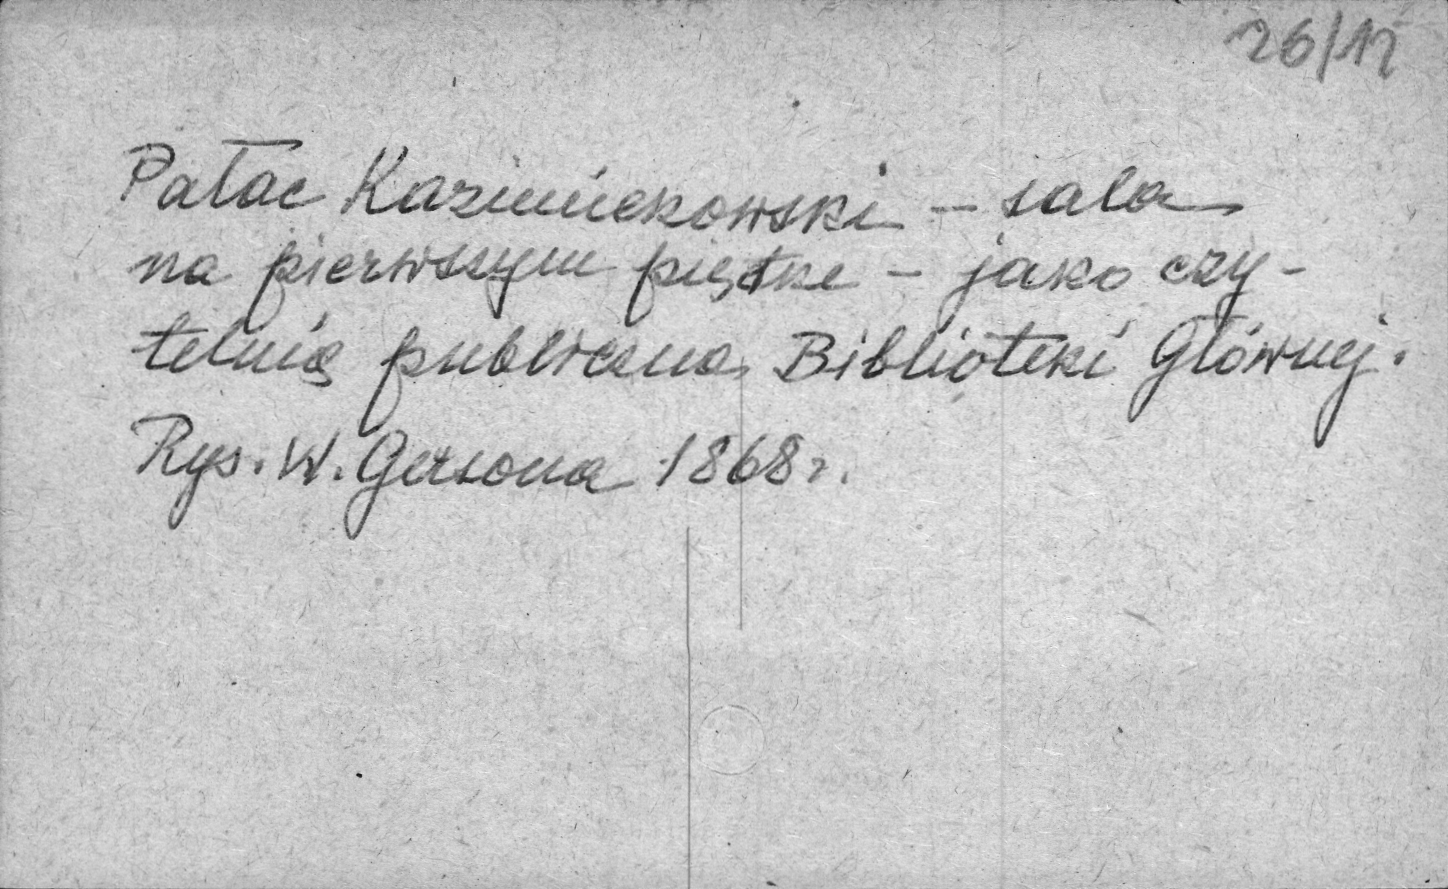 26/12
Pałac Kazimierzowski – sala
na pierwszym piętrze – jako czy-
telnia publiczna Biblioteki Głównej.
Rys. W. Gersona 1868 r.